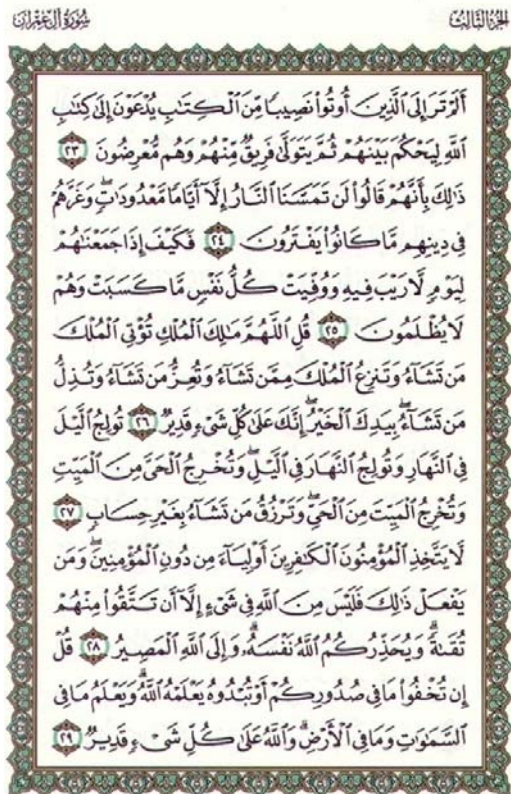 سُورَةُ آلِ عِمْرَانَ
الجُزْءُ الثَّالِثُ
أَلَمْ تَرَ إِلَى ٱلَّذِينَ أُوتُوا۟ نَصِيبًا مِّنَ ٱلْكِتَٰبِ يُدْعَوْنَ إِلَىٰ كِتَٰبِ
ٱللَّهِ لِيَحْكُمَ بَيْنَهُمْ ثُمَّ يَتَوَلَّىٰ فَرِيقٌ مِّنْهُمْ وَهُم مُّعْرِضُونَ ٢٣
ذَٰلِكَ بِأَنَّهُمْ قَالُوا۟ لَن تَمَسَّنَا ٱلنَّارُ إِلَّآ أَيَّامًا مَّعْدُودَٰتٍ ۖ وَغَرَّهُمْ
فِى دِينِهِم مَّا كَانُوا۟ يَفْتَرُونَ ٢٤ فَكَيْفَ إِذَا جَمَعْنَٰهُمْ
لِيَوْمٍ لَّا رَيْبَ فِيهِ وَوُفِّيَتْ كُلُّ نَفْسٍ مَّا كَسَبَتْ وَهُمْ
لَا يُظْلَمُونَ ٢٥ قُلِ ٱللَّهُمَّ مَٰلِكَ ٱلْمُلْكِ تُؤْتِى ٱلْمُلْكَ
مَن تَشَآءُ وَتَنزِعُ ٱلْمُلْكَ مِمَّن تَشَآءُ وَتُعِزُّ مَن تَشَآءُ وَتُذِلُّ
مَن تَشَآءُ ۖ بِيَدِكَ ٱلْخَيْرُ ۖ إِنَّكَ عَلَىٰ كُلِّ شَىْءٍ قَدِيرٌ ٢٦ تُولِجُ ٱلَّيْلَ
فِى ٱلنَّهَارِ وَتُولِجُ ٱلنَّهَارَ فِى ٱلَّيْلِ ۖ وَتُخْرِجُ ٱلْحَىَّ مِنَ ٱلْمَيِّتِ
وَتُخْرِجُ ٱلْمَيِّتَ مِنَ ٱلْحَىِّ ۖ وَتَرْزُقُ مَن تَشَآءُ بِغَيْرِ حِسَابٍ ٢٧
لَّا يَتَّخِذِ ٱلْمُؤْمِنُونَ ٱلْكَٰفِرِينَ أَوْلِيَآءَ مِن دُونِ ٱلْمُؤْمِنِينَ ۖ وَمَن
يَفْعَلْ ذَٰلِكَ فَلَيْسَ مِنَ ٱللَّهِ فِى شَىْءٍ إِلَّآ أَن تَتَّقُوا۟ مِنْهُمْ
تُقَىٰةً ۗ وَيُحَذِّرُكُمُ ٱللَّهُ نَفْسَهُۥ ۗ وَإِلَى ٱللَّهِ ٱلْمَصِيرُ ٢٨ قُلْ
إِن تُخْفُوا۟ مَا فِى صُدُورِكُمْ أَوْ تُبْدُوهُ يَعْلَمْهُ ٱللَّهُ ۗ وَيَعْلَمُ مَا فِى
ٱلسَّمَٰوَٰتِ وَمَا فِى ٱلْأَرْضِ ۗ وَٱللَّهُ عَلَىٰ كُلِّ شَىْءٍ قَدِيرٌ ٢٩